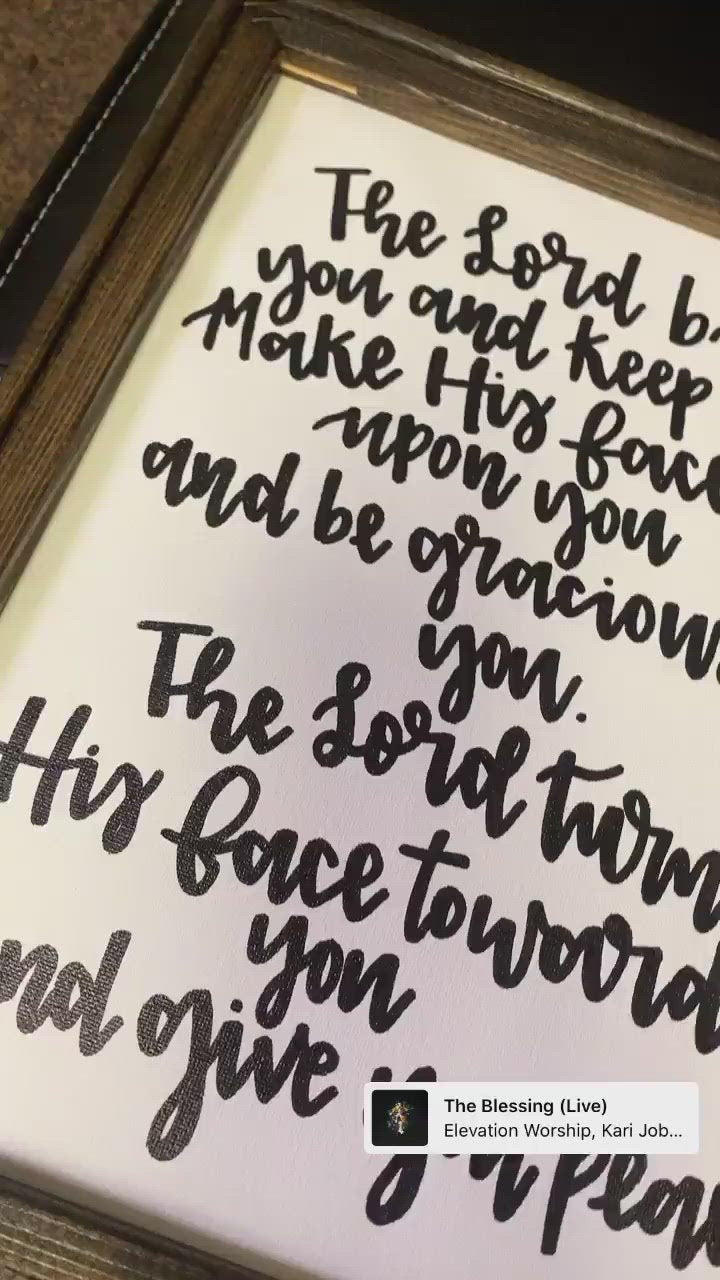 The Lord b
you and keep
Make His face
upon you
and be gracious
you.
The Lord turn
His face toward
you
nd give
The Blessing (Live)
Elevation Worship, Kari Job...